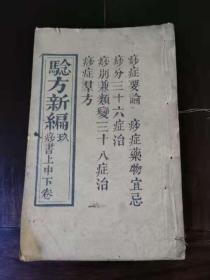 痧症要論　痧症藥物宜忌
痧分三十六症治
痧別兼類變三十八症治
痧症羣方
騐方新編
玖
痧書上中下卷